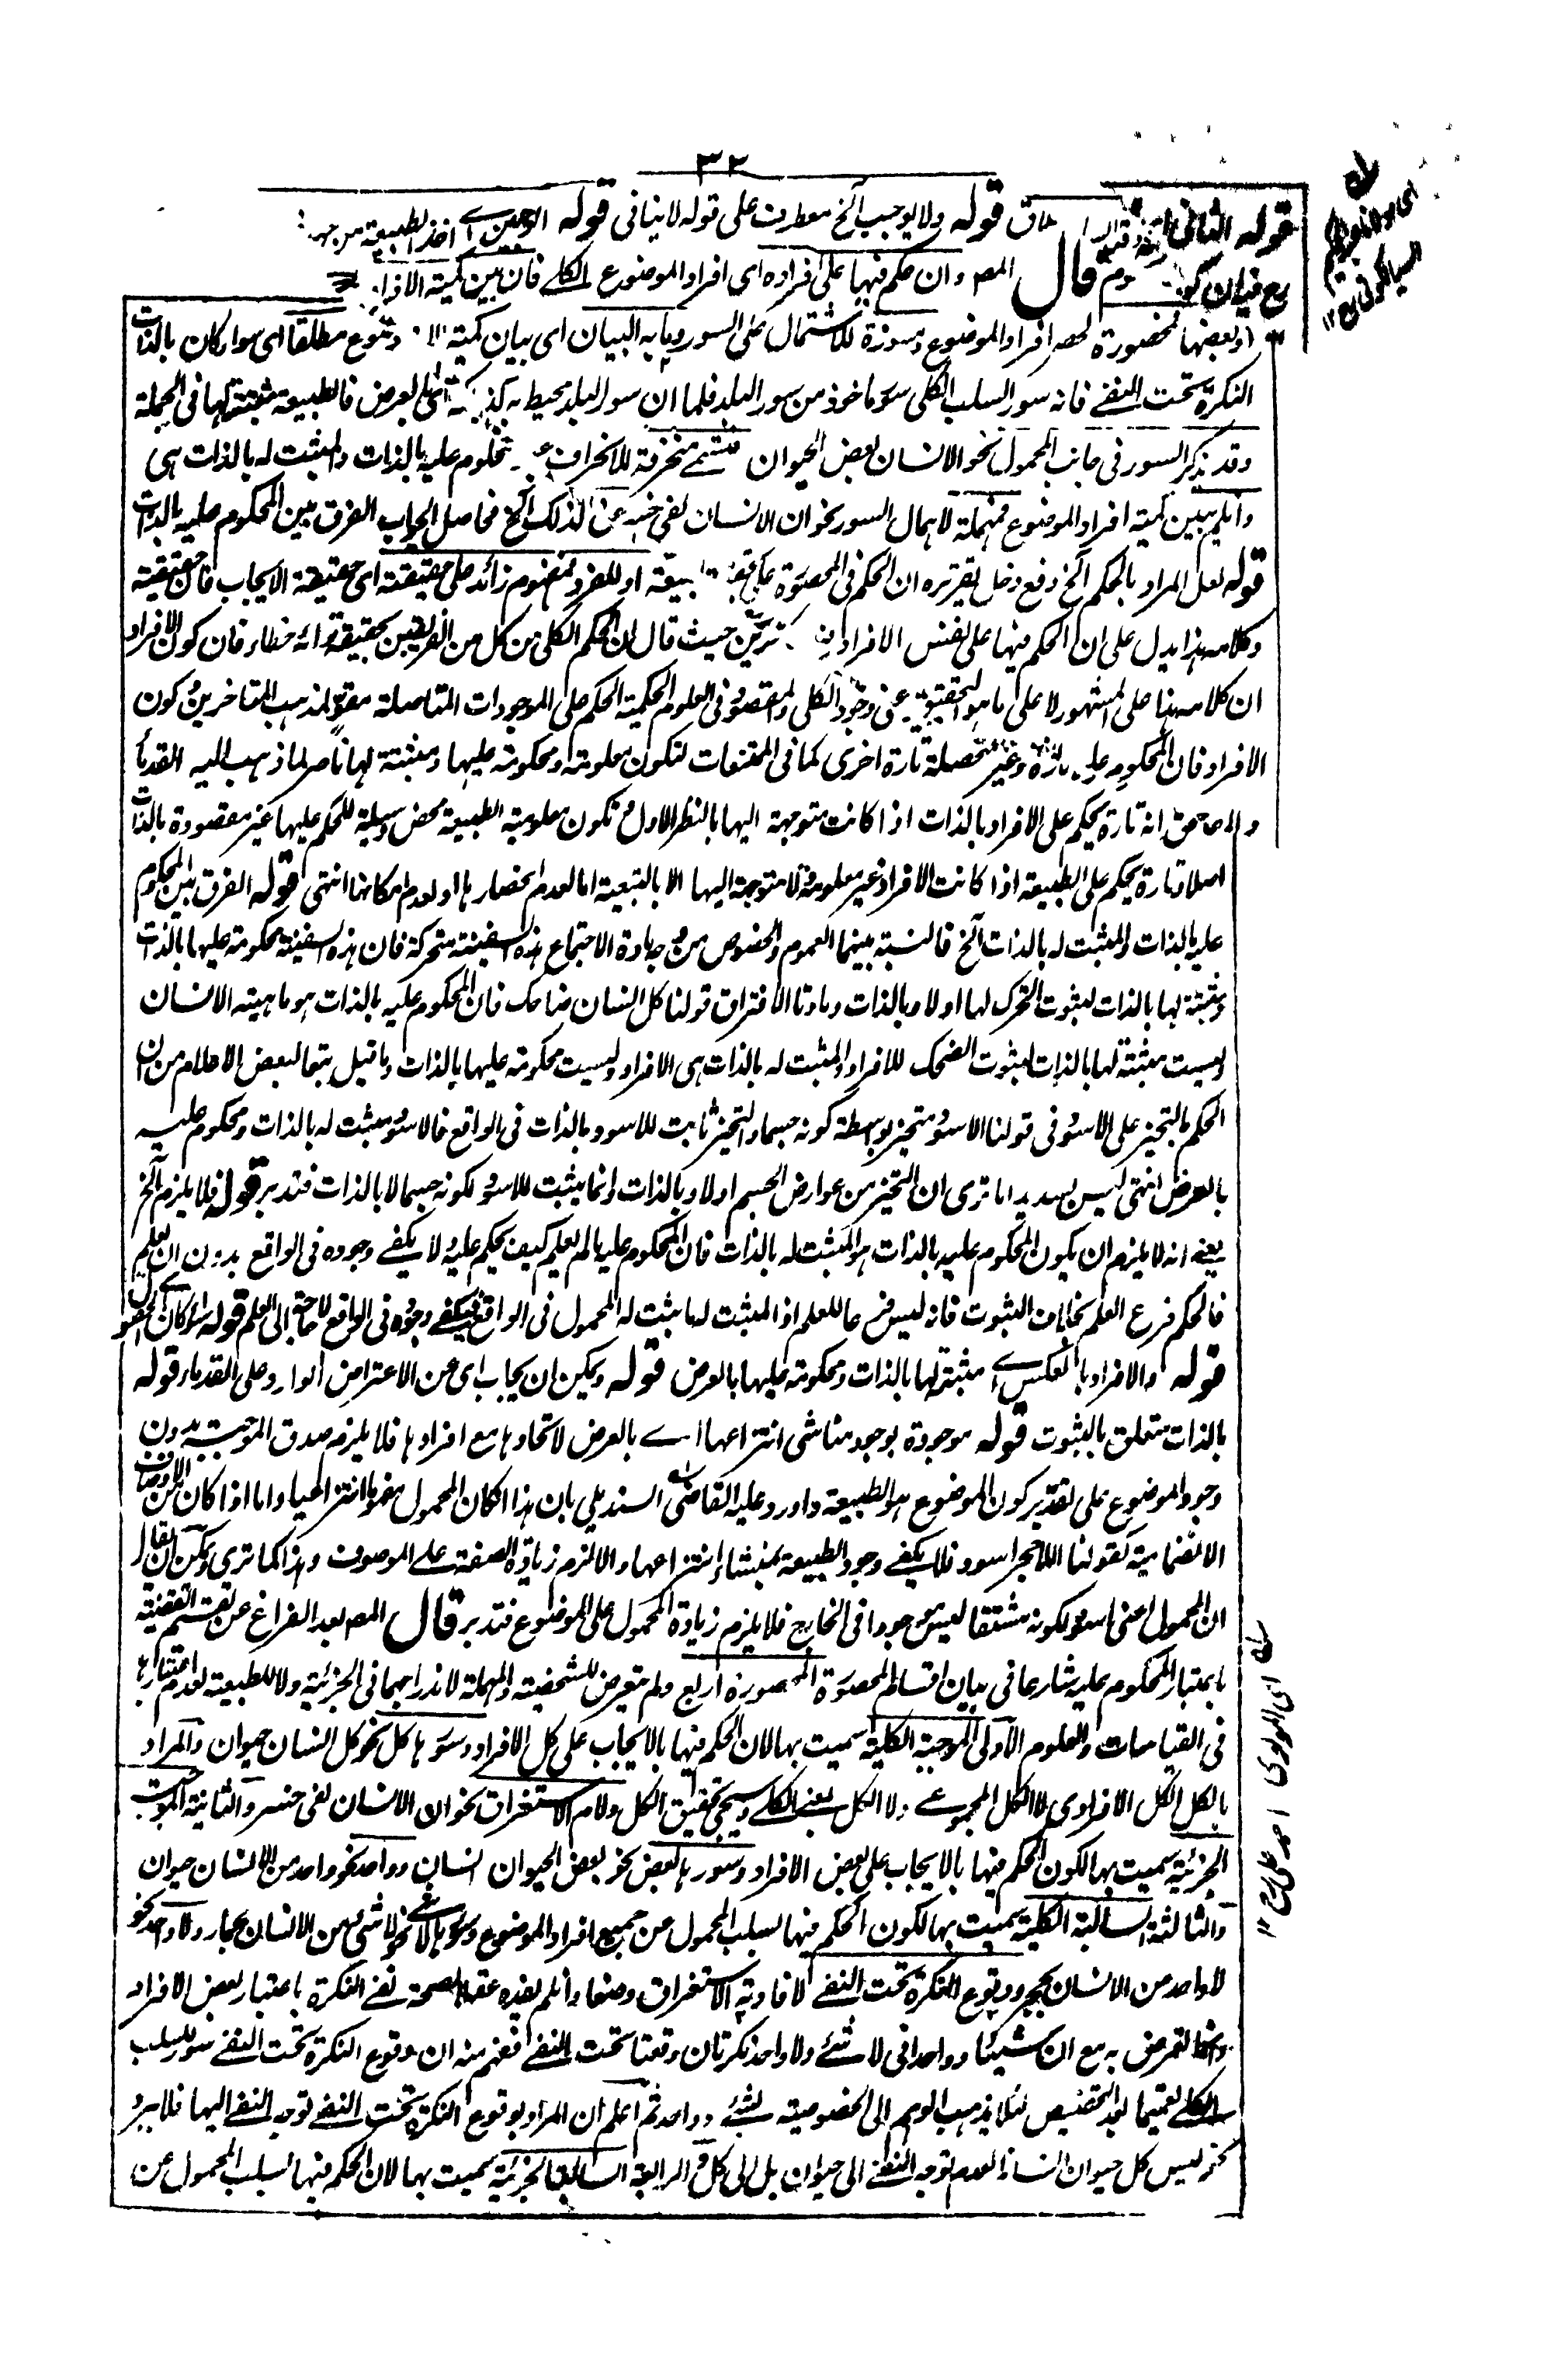 ٣٢
قوله الثانى قوله ولا يوجب الخ معطوف على قوله لا ينافى قوله اخذ الطبيعة من حيث
قال المصـ وان حكم فيها على افراده اى افراد الموضوع الكلے فان بين كمية الافراد
او بعضها محصورة لحصر افراد الموضوع ومسورة للاشتمال على السور وما به البيان اى بيان كمية مطلقا اى سواء كان بالذات
النكرة تحت النفے فانه سور السلب الكلى سور ماخوذ من سور البلد فكما ان سور البلد يحيط به بالعرض فالطبيعة مثبتة لها فى الجملة
وقد يذكر السور فى جانب المحمول نحو الانسان بعض الحيوان فتسمى منحرفة للانحراف محكوم عليه بالذات والمثبت له بالذات هى
وان لم يبين كمية افراد الموضوع فمهملة لاهمال السور نحو ان الانسان لفى خسر الخ فحاصل الجواب الفرق بين المحكوم عليه بالذات
قوله لعل المراد بالحكم الخ دفع دخل تقريره ان الحكم فى المحصورة على زائد على حقيقته اى حقيقة الايجاب فان حقيقة
وكلامه هذا يدل على ان الحكم فيها على نفس الافراد حيث قال ان الحكم الكلى من كل من الفريقين خطاء فان كون الافراد
ان كلامه هذا على المشهور لا على ما هو التحقيق وجود الكلى والمقصود فى العلوم الحكمية الحكم على الموجودات المتاصلة مقو لمذهب المتاخرين كون
الافراد فان المحكوم عليه وغير متحصلة تارة اخرى كما فى الممتنعات لتكون معلومة ومحكومة عليها ومثبتة لها ناصر لما ذهب اليه القدماء
انه تارة يحكم على الافراد بالذات اذا كانت متوجهة اليها بالنظر الاول وتكون معلومية الطبيعة محض وسيلة للحكم عليها غير مقصودة بالذات
اصلا وتارة يحكم على الطبيعة اذا كانت الافراد غير معلومة ولا متوجهة اليها الا بالتبعية اما لعدم انحصارها او لعدم امكانها انتهى قوله الفرق بين المحكوم
عليه بالذات والمثبت له بالذات الخ فالنسبة بينهما العموم والخصوص من وجه مادة الاجتماع هذه السفينة متحركة فان هذه السفينة محكومة عليها بالذات
ومثبتة لها بالذات لثبوت التحرك لها اولا وبالذات ومادتا الافتراق قولنا كل انسان ضاحك فان المحكوم عليه بالذات هو ماهية الانسان
وليست مثبتة لها بالذات لثبوت الضحك للافراد والمثبت له بالذات هى الافراد وليست محكومة عليها بالذات وما قيل تبعا لبعض الاعلام من ان
الحكم بالتحيز على الاسود فى قولنا الاسود متحيز بواسطة كونه جسما والتحيز ثابت للاسود بالذات فى الواقع فالاسود مثبت له بالذات ومحكوم عليه
بالعرض انتهى ليس بسديد اما ترى ان التحيز من عوارض الجسم اولا وبالذات وانما يثبت للاسود لكونه جسما لا بالذات فتدبر قوله فلا يلزم الخ
يعنے انه لا يلزم ان يكون المحكوم عليه بالذات هو المثبت له بالذات فان المحكوم عليه ما لم يعلم كيف يحكم عليه ولا يكفے وجوده فى الواقع بدون ان يعلم
فالحكم فرع العلم بخلاف الثبوت فانه ليس فرعا للعلم اذ المثبت له ما يثبت له المحمول فى الواقع فيكفے وجوده فى الواقع لا حاجة الى العلم قوله سواء كان
قوله والافراد بالعكس اے مثبتة لها بالذات ومحكومة عليها بالعرض قوله ويمكن ان يجاب اى عن الاعتراض الوارد على القدماء قوله
بالذات متعلق بالثبوت قوله موجودة بوجود مناشى انتزاعها اے بالعرض لاتحادها مع افرادها فلا يلزم صدق الموجبة بدون
وجود الموضوع على تقدير كون الموضوع هو الطبيعة واورد عليه القاضى السنديلى بان هذا ان كان المحمول مفهوما انتزاعيا واما اذا كان من الاوصاف
الانضمامية كقولنا اللاحجر اسود فلا يكفے وجود الطبيعة بمنشاء انتزاعها والا لزم زيادة الصفة علے الموصوف وهذا كما ترى ويمكن ان يقال
ان المحمول اعنى اسود لكونه مشتقا ليس موجودا فى الخارج فلا يلزم زيادة المحمول على الموضوع فتدبر قال المصـ بعد الفراغ عن تقسيم القضية
باعتبار المحكوم عليه شارعا فى بيان اقسام المحصورة المحصورة اربع ولم يتعرض للشخصية والمهملة لاندراجهما فى الجزئية ولا للطبيعية لعدم اعتبارها
فى القياسات والعلوم الاولى الموجبة الكلية سميت بها لان الحكم فيها بالايجاب على كل الافراد وسورها كل نحو كل انسان حيوان والمراد
بالكل الكل الافرادى لا الكل المجموعے ولا الكل بمعنے الكلے وسيجئ تحقيق الكل ولام الاستغراق نحو ان الانسان لفى خسر والثانية الموجبة
الجزئية سميت بها لكون الحكم فيها بالايجاب على بعض الافراد وسورها بعض نحو بعض الحيوان انسان وواحد نحو واحد من الانسان حيوان
والثالثة السالبة الكلية سميت بها لكون الحكم فيها بسلب المحمول عن جميع افراد الموضوع وسورها لا شئ نحو لا شئ من الانسان بحمار ولا واحد نحو
لا واحد من الانسان بحجر ووقوع النكرة تحت النفے لافادته الاستغراق وضعا وان لم يفده عقلا لصحة نفے النكرة باعتبار بعض الافراد
وانما تعرض به مع ان شيئا وواحدا فى لا شئے ولا واحد نكرتان وقعتا تحت النفے افهم منه ان وقوع النكرة تحت النفے سور للسلب
الكلے تعميما بعد التخصيص لئلا يذهب الوهم الى الخصوصية لشئ وواحد ثم اعلم ان المراد بوقوع النكرة تحت النفے توجه النفے اليها فلا يرد
نحو ليس كل حيوان انسانا لعدم توجه النفے الى حيوان بل الى كل والرابعة السالبة الجزئية سميت بها لان الحكم فيها بسلب المحمول عن
اى المولوى احمد على رح ١٢